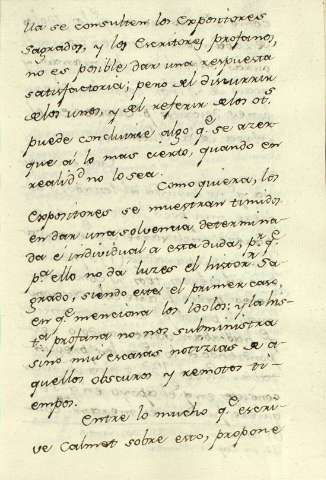 lla se consulten los Expositores
sagrados, y los Escritores profanos,
no es posible dar una respuesta
satisfactoria; pero del discurrir
de los unos, y del referir de los ots.
puede concluirse algo qe. se azer-
que a lo mas cierto, quando en
realidd no lo sea.
Como quiera, los
Expositores se muestran timidos
en dar una solvencia determina-
da e individual a esta duda, pr. qe.
pa. ello no da luzes el histor. Sa-
grado, siendo este el primer caso
en qe. menciona los idolos: y la his-
ta. profana no nos subministra
sino mui escasas notizias de a-
quellos obscuros y remotos ti-
empos.
Entre lo mucho qe. escri-
ve Calmet sobre esto, propone